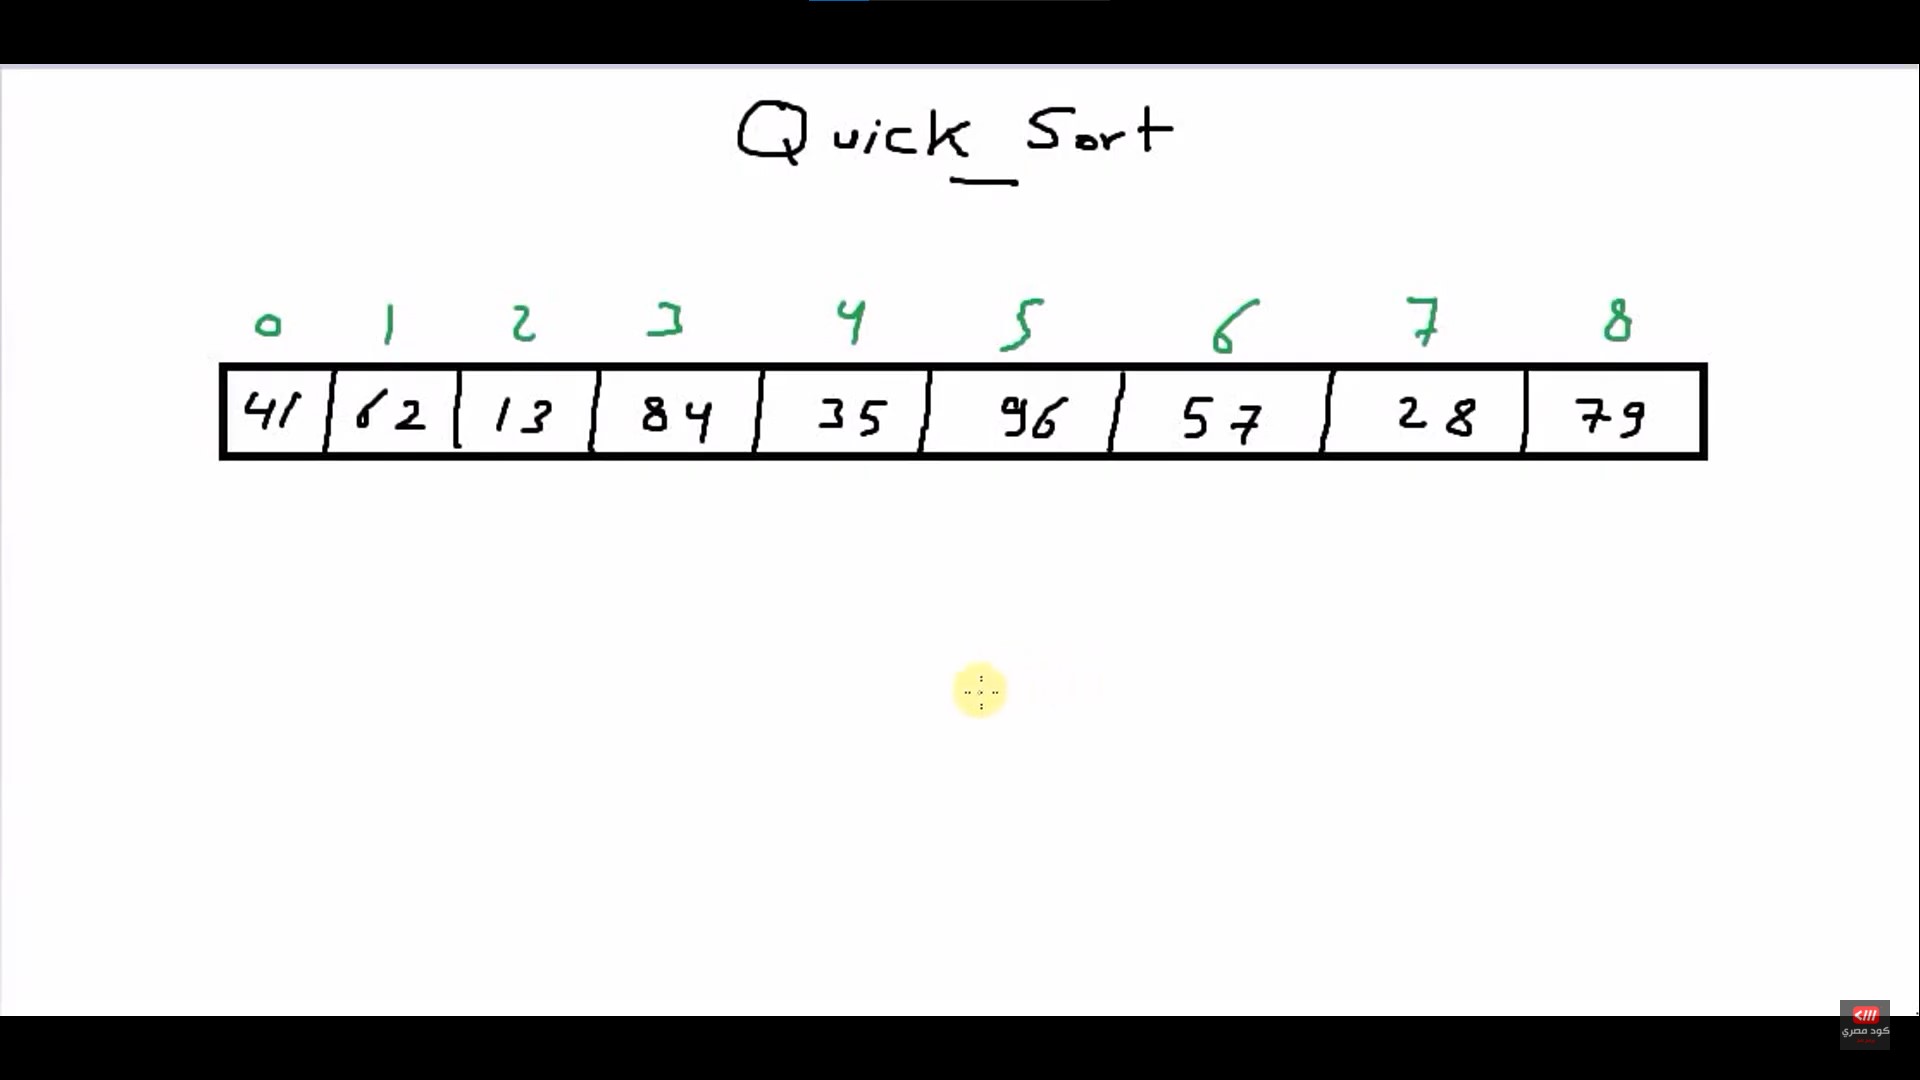 Quick Sort
0 1 2 3 4 5 6 7 8
41 62 13 84 35 96 57 28 79
كود مصري